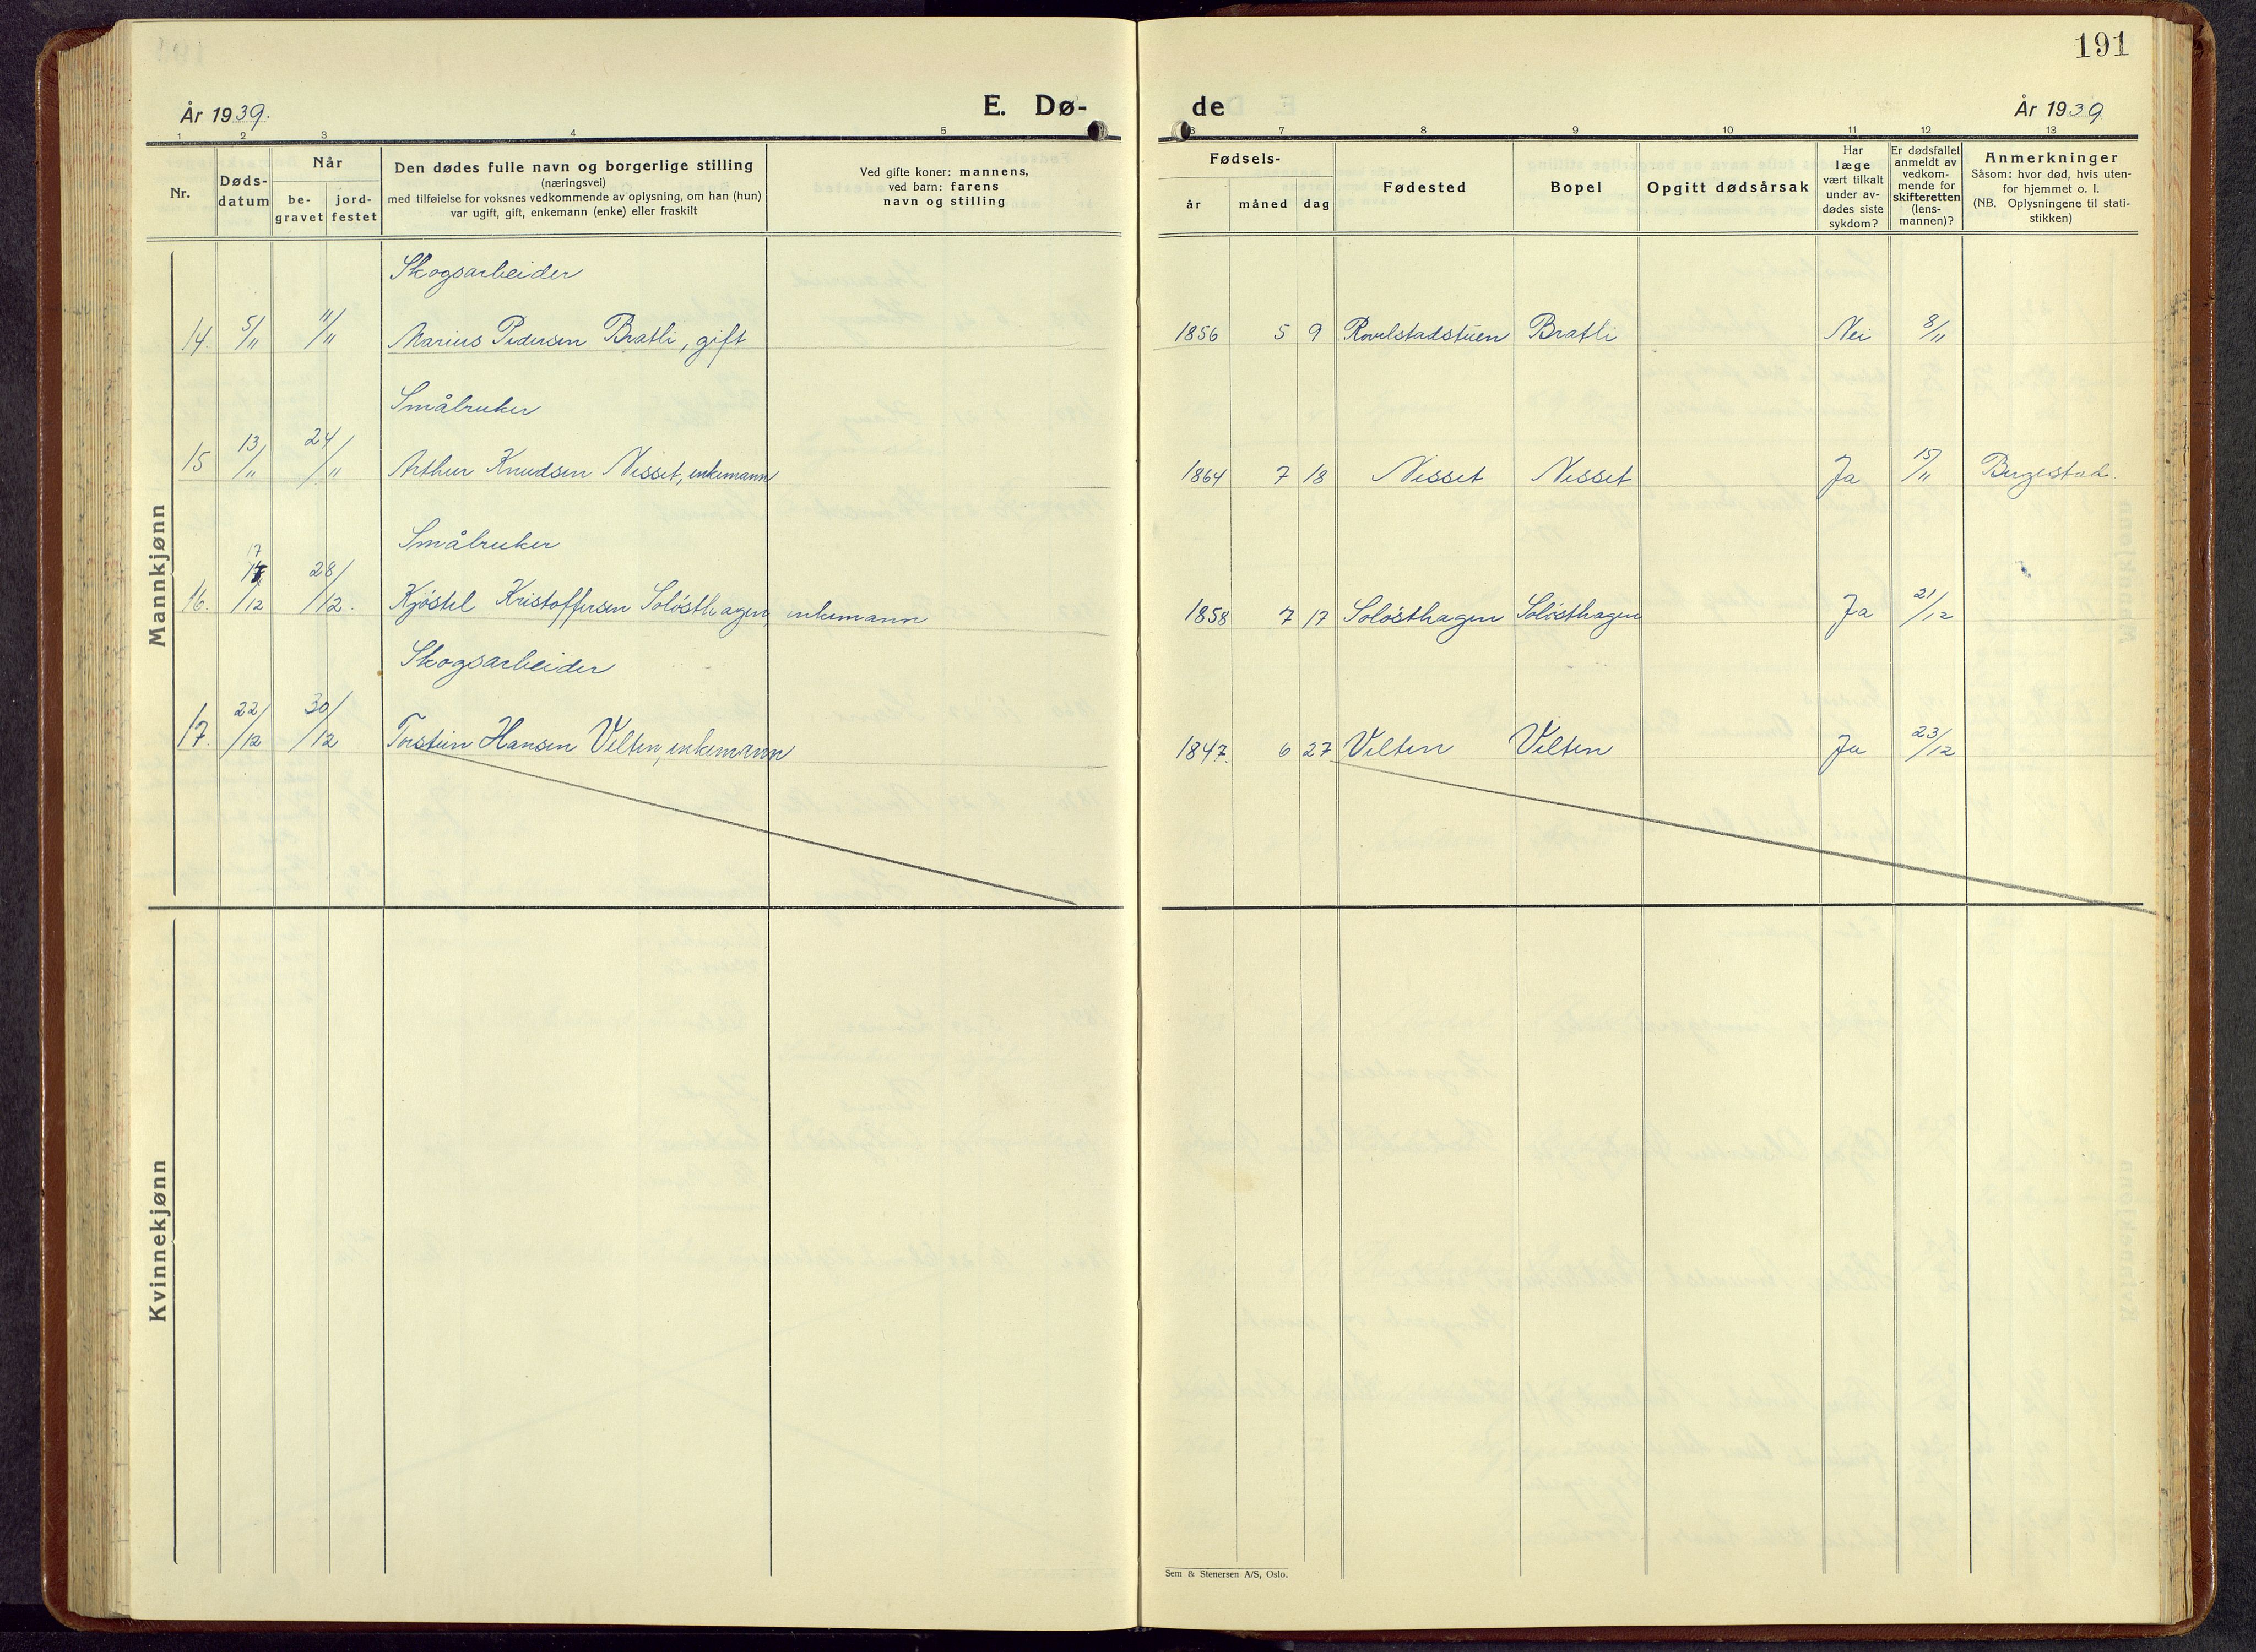 191
År 1939.
E. Dø-
de
År 1939
1 2 3 4 5
6 7 8 9 10 11 12 13
Nr.
Døds-
datum
Når
be-
gravet
jord-
festet
Den dødes fulle navn og borgerlige stilling
(næringsvei)
med tilføielse for voksnes vedkommende av oplysning, om han (hun)
var ugift, gift, enkemann (enke) eller fraskilt
Ved gifte koner: mannens,
ved barn: farens
navn og stilling
Fødsels-
år
måned
dag
Fødested
Bopel
Opgitt dødsårsak
Har
læge
vært tilkalt
under av-
dødes siste
sykdom?
Er dødsfallet
anmeldt av
vedkom-
mende for
skifteretten
(lens-
mannen)?
Anmerkninger
Såsom: hvor død, hvis uten-
for hjemmet o. l.
(NB. Oplysningene til stati-
stikken)
Mannkjønn
Skogsarbeider
14. 5/11 11/11 Marius Pedersen Bratli, gift 1856 5 9 Rovelstadstuen Bratli Nei 8/11
Småbruker
15 13/11 24/11 Arthur Knudsen Nesset, enkemann 1864 7 18 Nesset Nesset Ja 15/11
Småbruker
16. 17/12 28/12. Kjøstel Kristoffersen Soløsthagen, enkemann 1858 7 17 Soløsthagen Soløsthagen Ja 21/12
Skogsarbeider
17. 22/12 30/12 Torstein Hansen Velten, enkemann 1847. 6 27 Velten Velten Ja 23/12
Kvinnekjønn
Sem & Stenersen A/S, Oslo.